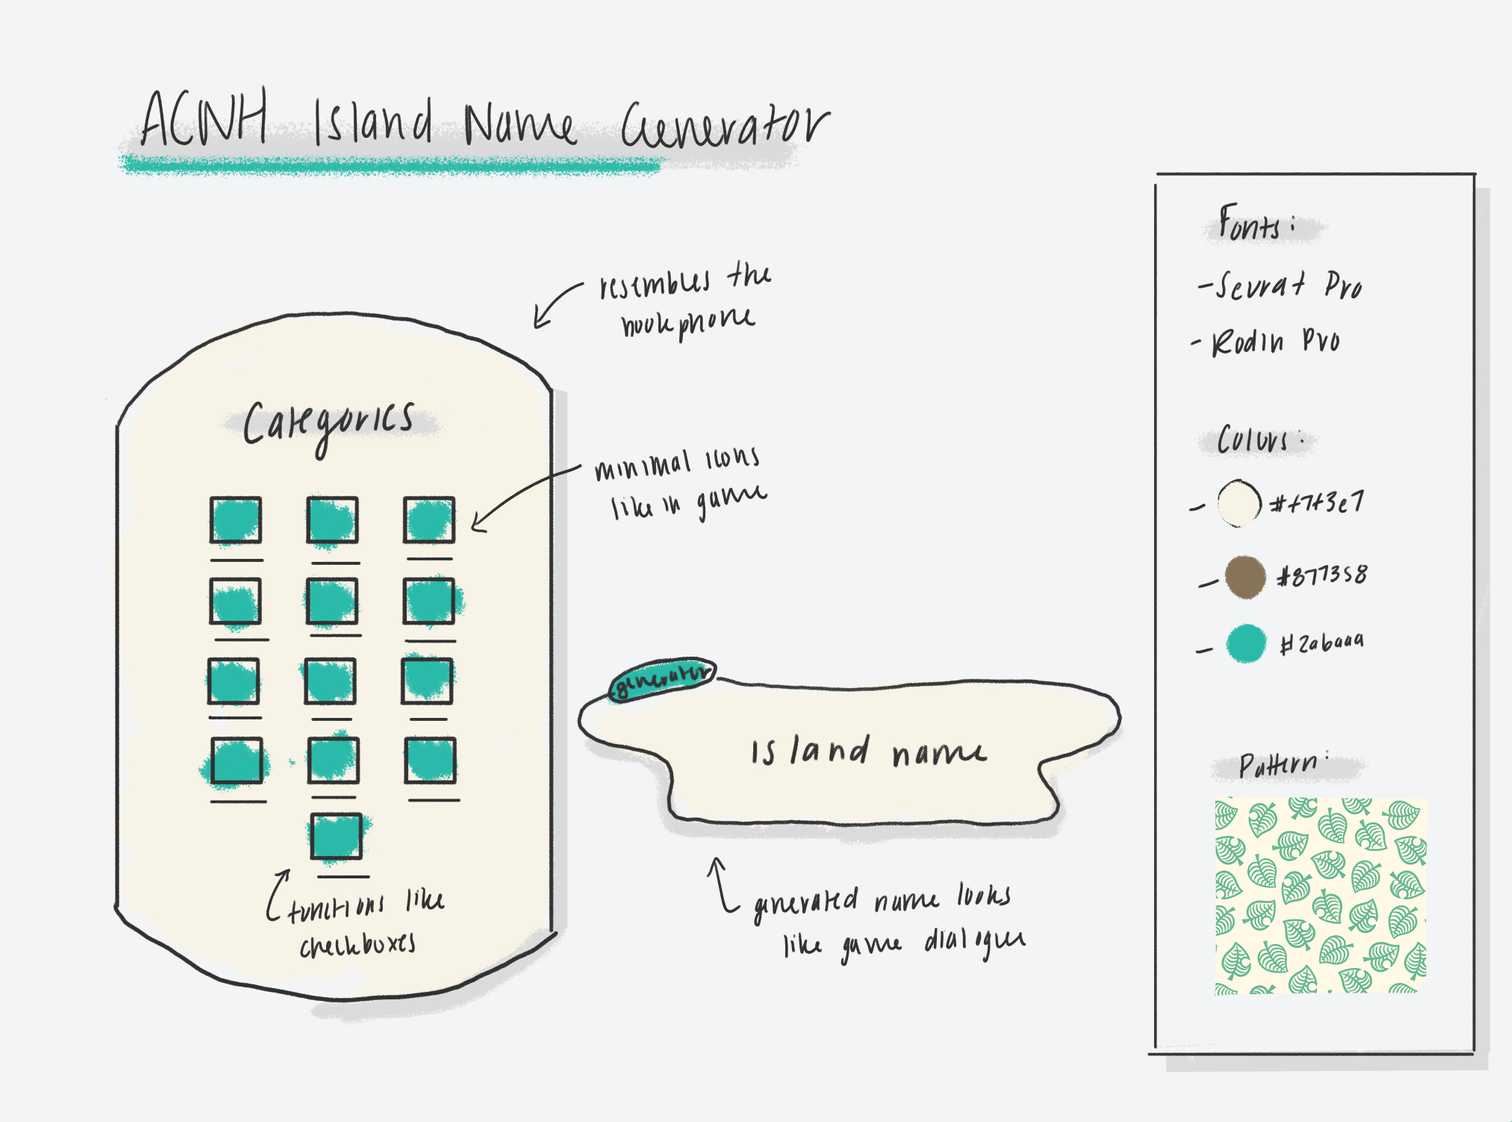 ACNH Island Name Generator
resembles the
nookphone
Categories
minimal icons
like in game
functions like
checkboxes
generator
island name
generated name looks
like game dialogue
Fonts:
- Seurat Pro
- Rodin Pro
Colors:
- #f7f3e7
- #877358
- #2abaaa
Pattern: